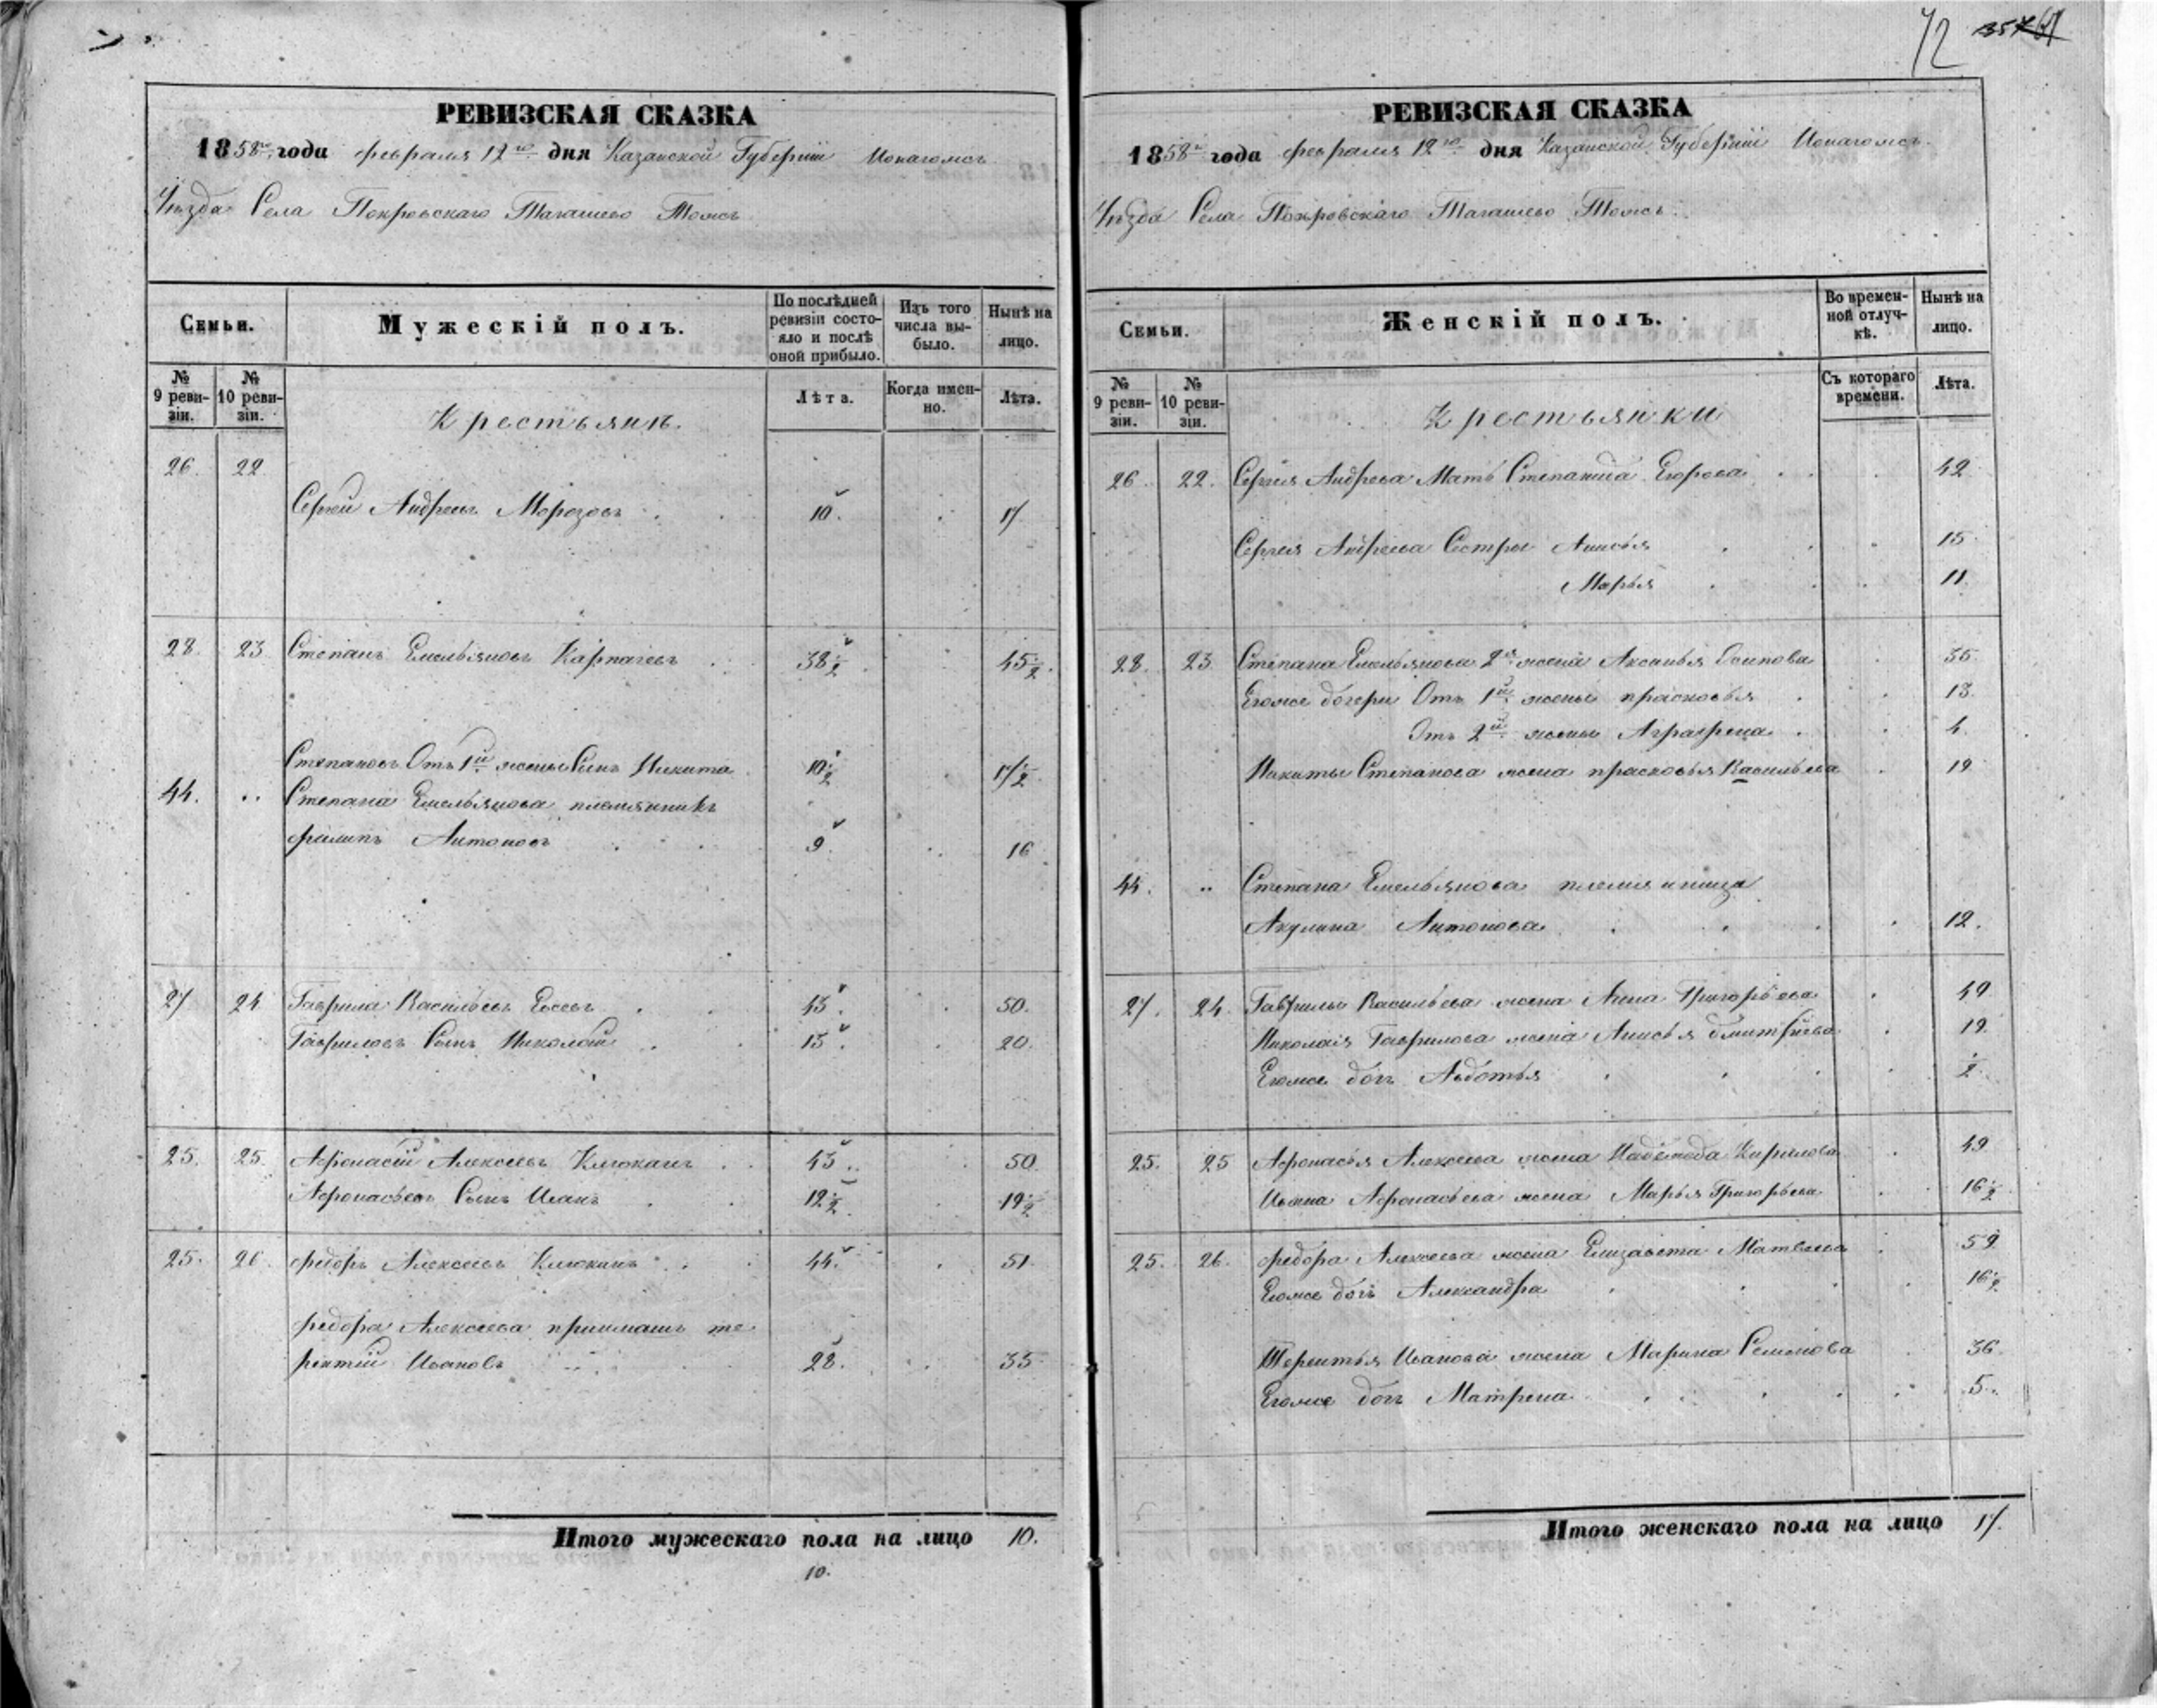 РЕВИЗСКАЯ СКАЗКА
1858го года февраля 12го дня Казанской Губернiи
Уѣзда Села Покровскаго Тагашево Тожъ
Семьи.
Мужескiй полъ.
По послѣдней ревизiи состояло и послѣ оной прибыло.
Изъ того числа выбыло.
Нынѣ на лицо.
№ 9 ревизiи.
№ 10 ревизiи.
Крестьянъ.
Лѣта.
Когда именно.
Лѣта.
26. 22. Сергѣй Андреевъ Морозовъ 10. 17
28. 23 Степанъ Емельяновъ Карпачевъ 38 1/2 45 1/2.
Степановъ Отъ 1й жены Сынъ Никита 10 1/2 17 1/2
44. .. Степана Емельянова племянникъ
филипъ Антоновъ 9. 16
27 24 Гаврила Васильевъ 43. 50.
Гавриловъ Сынъ Николай 13. 20.
25. 25. Афонасiй Алексеевъ Клюкинъ 43. 50.
Афонасьевъ Сынъ Иванъ 12 1/2. 19 1/2
25. 26. федоръ Алексеевъ Клюкинъ 44. 51.
федора Алексеева приимашъ те
рентiй Ивановъ 28. 35.
Итого мужескаго пола на лицо 10.
10.
72
РЕВИЗСКАЯ СКАЗКА
1858го года февраля 12го дня Казанской Губернiи
Уѣзда Села Покровскаго Тагашево Тожъ.
Семьи.
Женскiй полъ.
Во временной отлучкѣ.
Нынѣ на лицо.
№ 9 ревизiи.
№ 10 ревизiи.
Крестьянки
Съ котораго времени.
Лѣта.
26. 22. Сергея Андреева Мать Степанида Егорова 42
Сергея Андреева Сестры Анисья 15.
Марья 11.
28. 23. Степана Емельянова 2я жена Аксинья Осипова 35.
Егоже дочери Отъ 1й жены прасковья 13.
Отъ 2й жены Аграфена 4.
Никиты Степанова жена прасковья Васильева 19
44. .. Степана Емельянова племянница
Акулина Антонова 12.
27. 24. Гаврилы Васильева жена Анна Григорьева 49
Николая Гаврилова жена Анисья дмитрiева 19.
Егоже дочь Авдотья 1/2.
25. 25 Афонасья Алексеева жена Надежда Кирилова 49
Ивана Афонасьева жена Марья Григорьева 16 1/2
25. 26. федора Алексеева жена Елизавета Матвеева 52
Егоже дочь Александра 16 1/2
Терентья Иванова жена Марина Семенова 36.
Егоже дочь Матрена 5.
Итого женскаго пола на лицо 17.